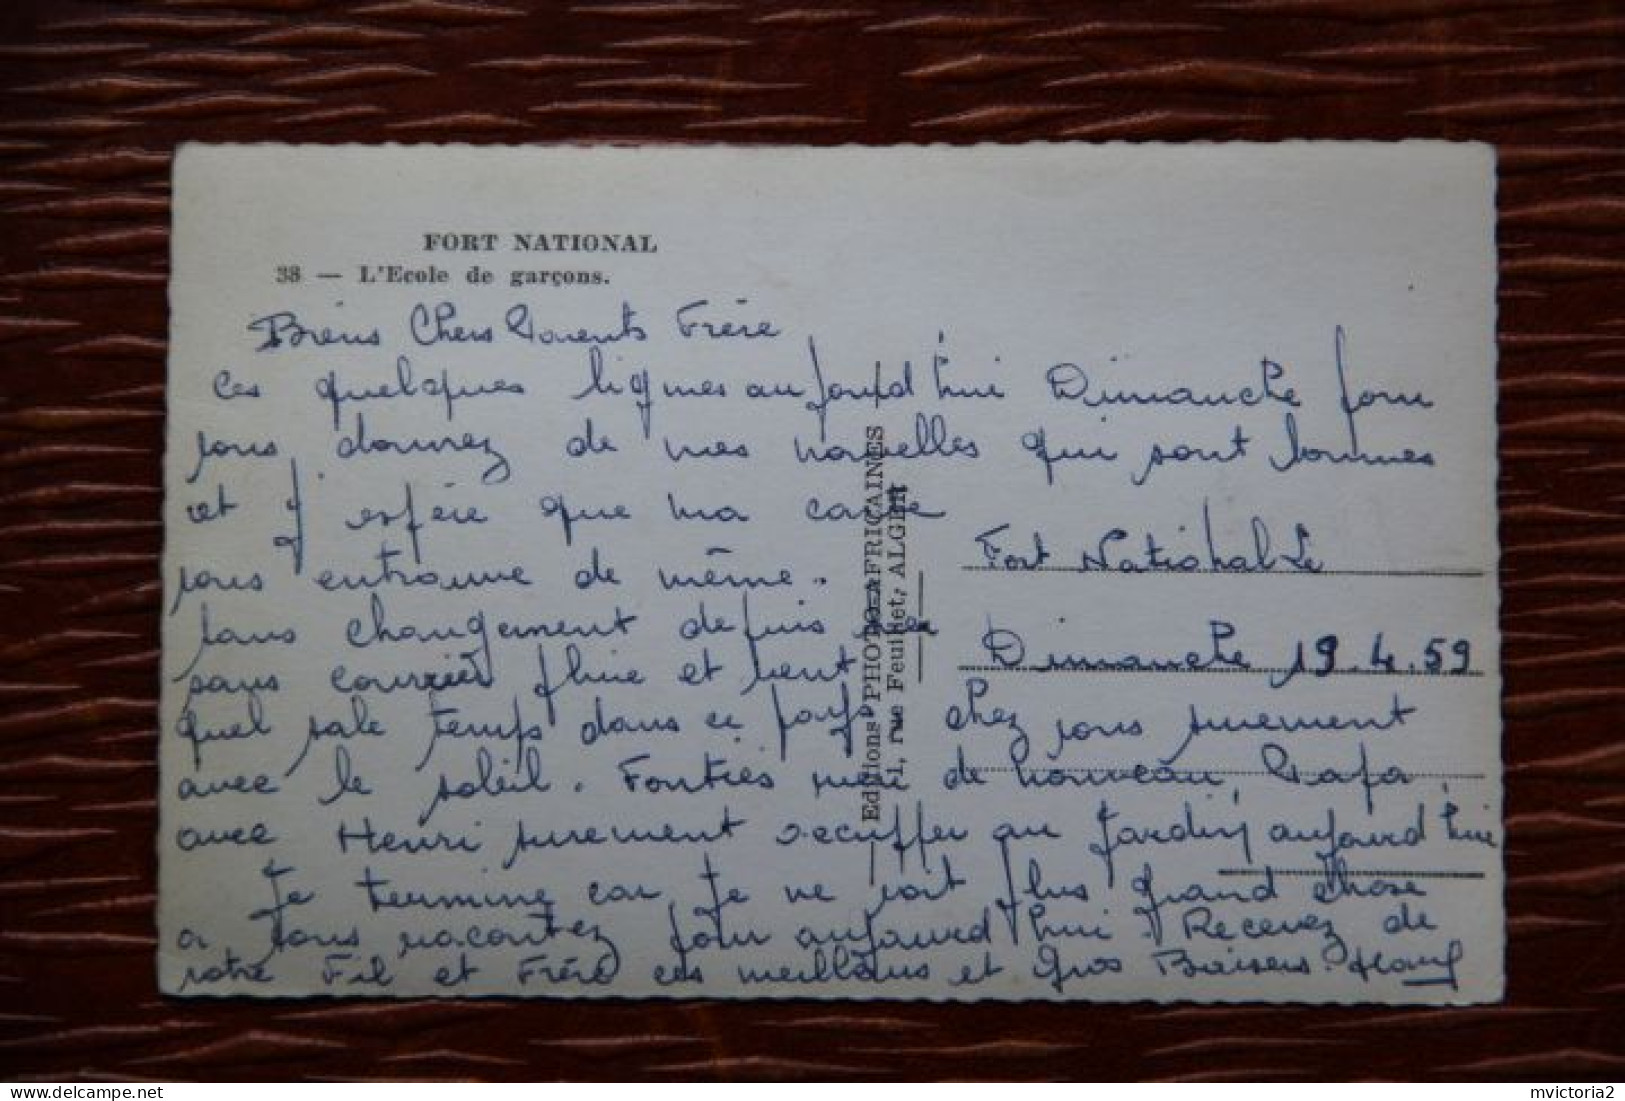 FORT NATIONAL
38 — L'Ecole de garçons.
Biens Chers Parents Frère
Ces quelques lignes aujourd'hui Dimanche pour
vous donnez de mes nouvelles qui sont bonnes
et j'espère que ma carte
vous entrouve de même.
sans changement depuis hier
sans courrier pluie et vent
quel sale temps dans ce pays chez vous surement
avec le soleil. de nouveau Papa
avec Henri surement s'occuper au Jardin, aujourd'hui
Je termine car Je ne voit plus grand chose
a vous racontez pour aujourd'hui. Recevez de
votre Fil et Frère ces meilleurs et Gros Baisers.
Fort National Le
Dimanche 19.4.59
Editions PHOTO-AFRICAINES
1, rue Feuillet, ALGER
delcampe.net
mvictoria2